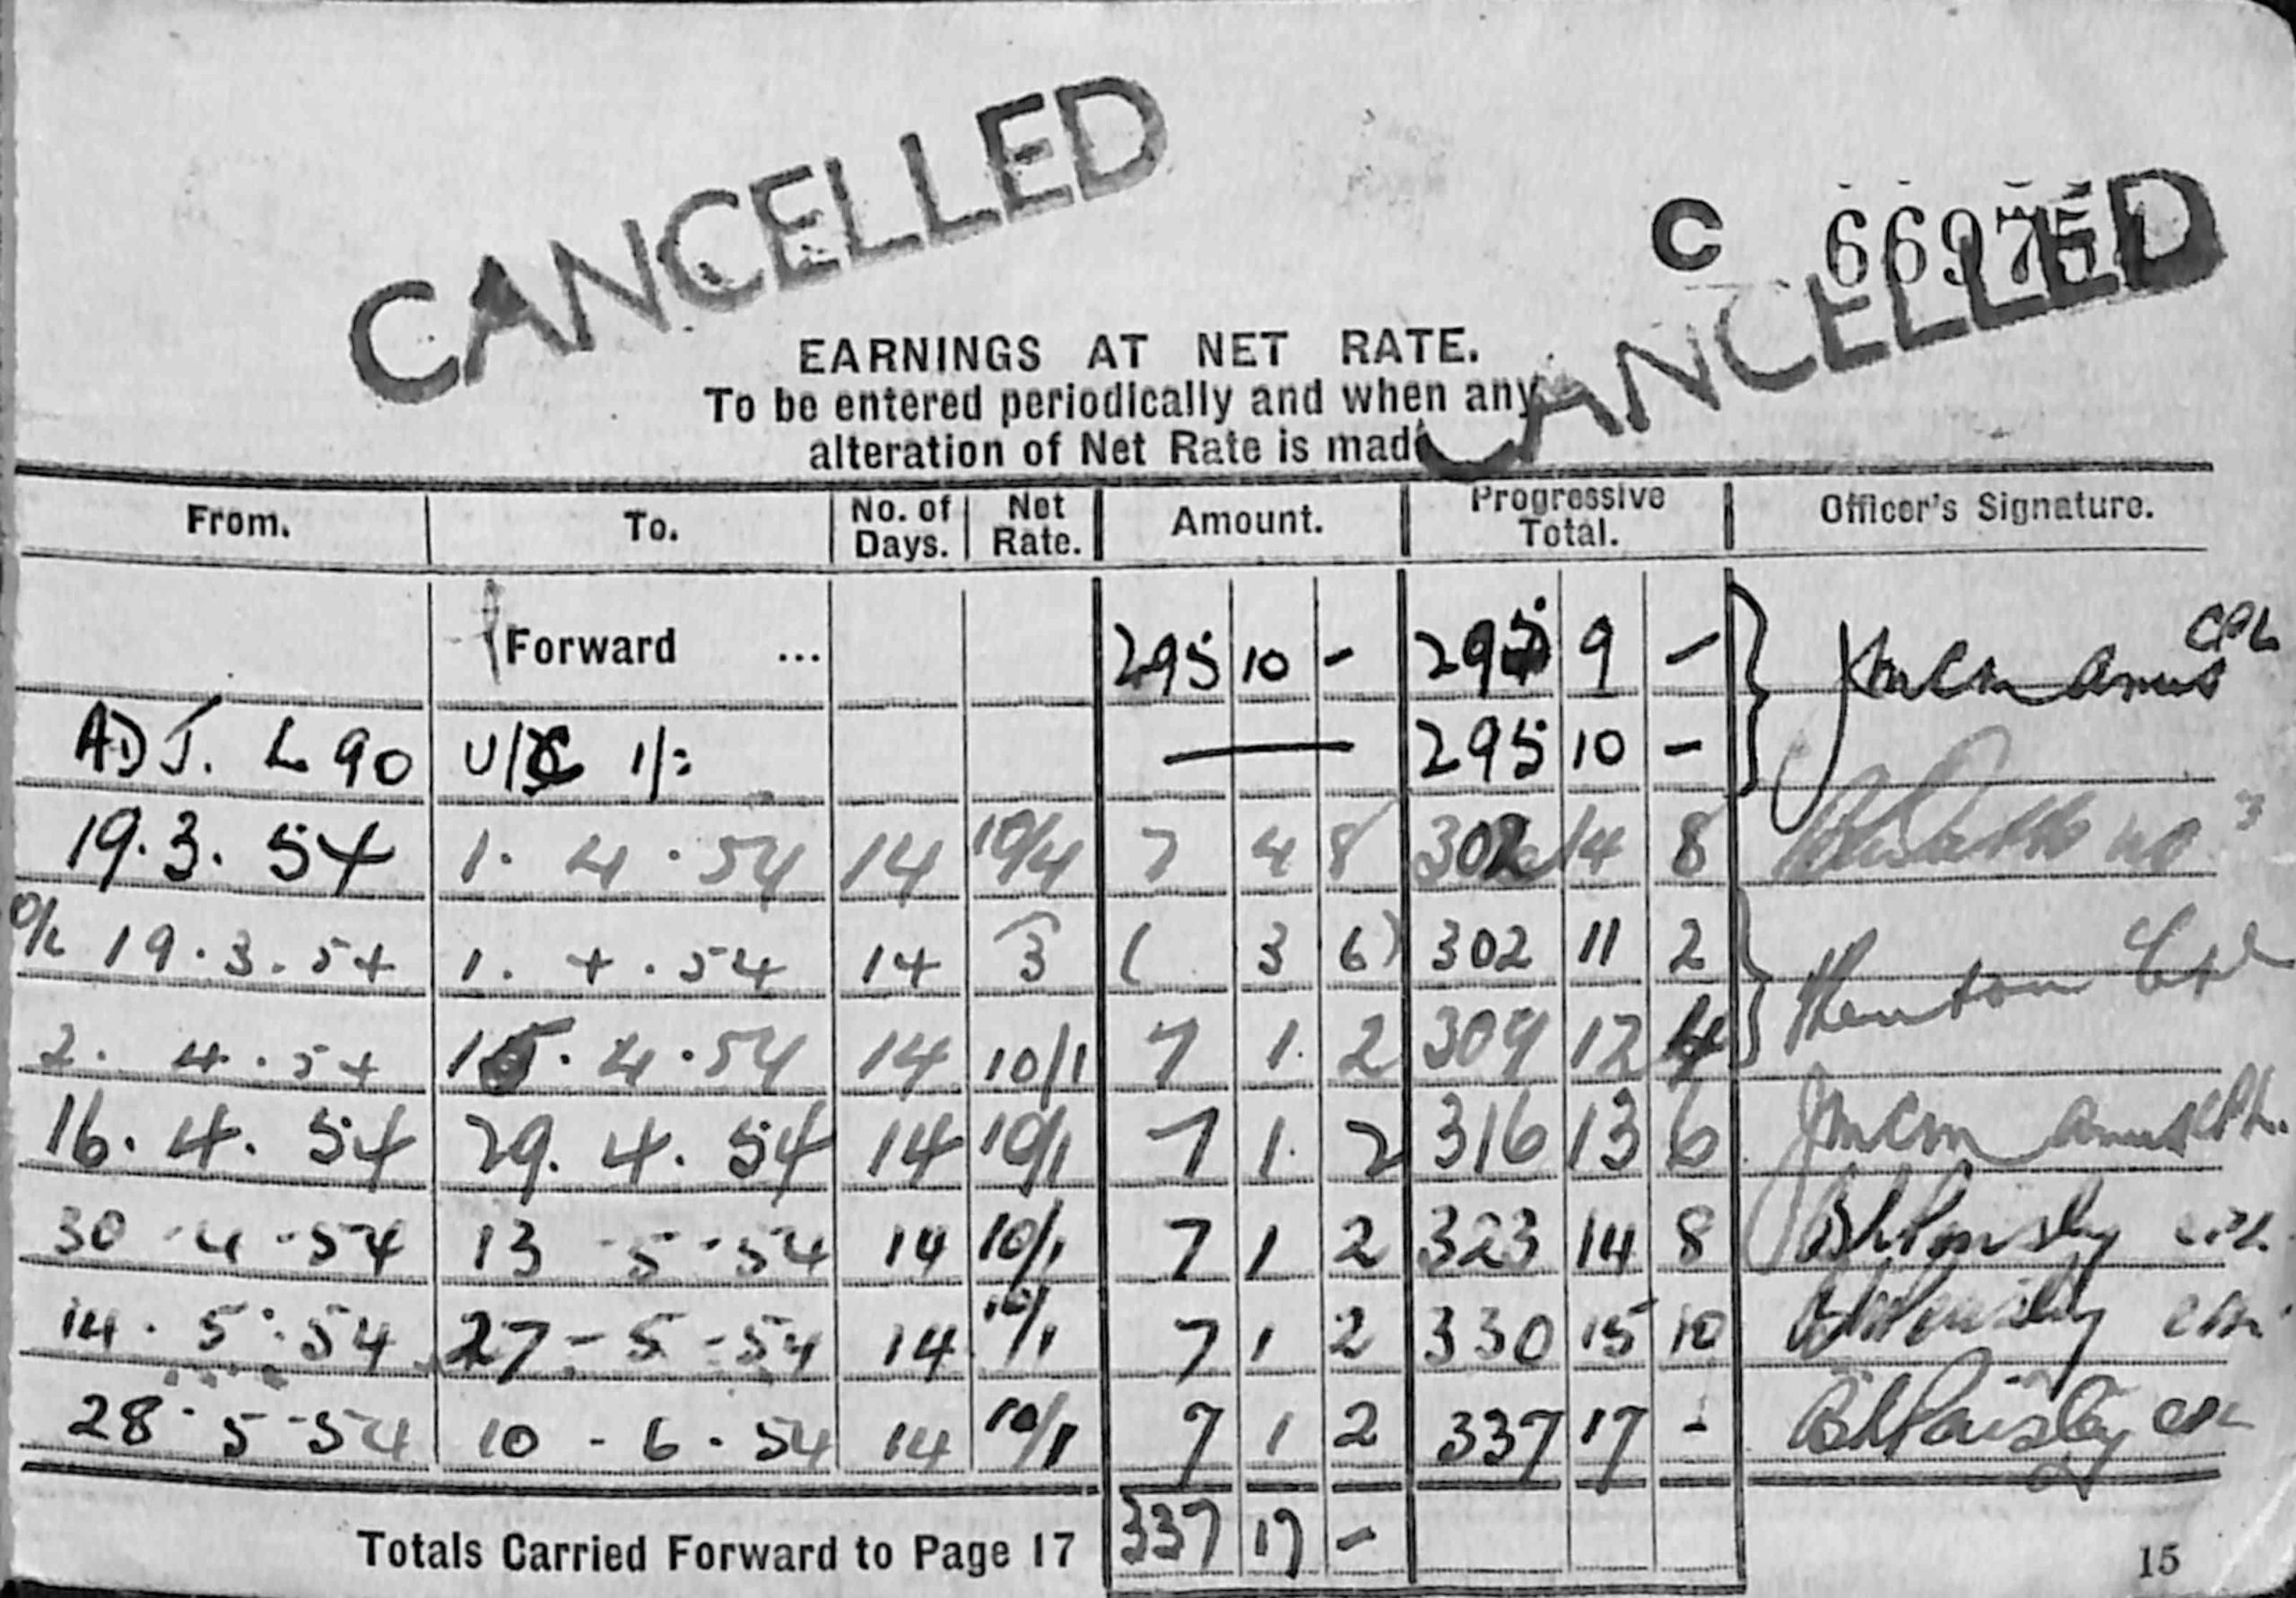 CANCELLED
C 66975
CANCELLED
EARNINGS AT NET RATE.
To be entered periodically and when any
alteration of Net Rate is made
From. To. No. of Days. Net Rate. Amount. Progressive Total. Officer's Signature.
Forward ... 295 10 - 295 9 - CPL
ADJ. L 90 U/C 1/: — 295 10 -
19.3.54 1.4.54 14 10/4 7 4 8 302 14 8
O/C 19.3.54 1.4.54 14 3 ( 3 6) 302 11 2 Cpl
2.4.54 15.4.54 14 10/1 7 1. 2 309 12 4
16.4.54 29.4.54 14 10/1 7 1. 2 316 13 6 CPL.
30-4-54 13-5-54 14 10/1 7 1 2 323 14 8
14.5.54 27-5-54 14 10/1 7 1 2 330 15 10
28-5-54 10-6-54 14 10/1 7 1 2 337 17 -
Totals Carried Forward to Page 17 337 17 -
15